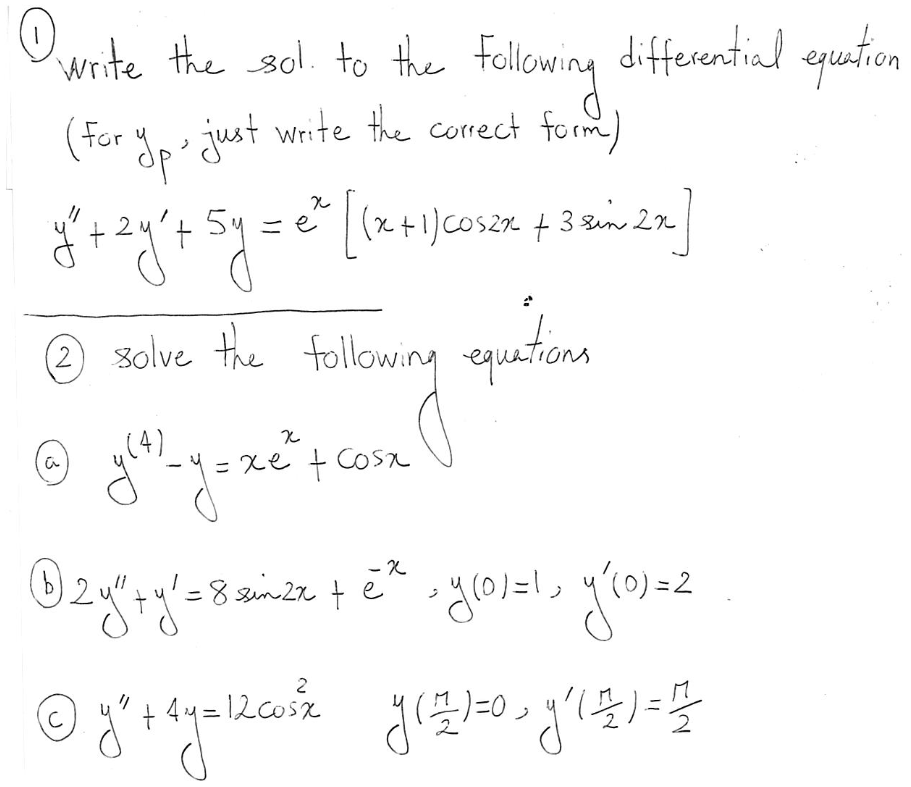 ① write the sol. to the following differential equation
(for yₚ, just write the correct form)
y'' + 2y' + 5y = eˣ [(x+1)cos2x + 3 sin 2x]
② solve the following equations
ⓐ y⁽⁴⁾ - y = xeˣ + cosx
ⓑ 2y'' + y' = 8 sin2x + e⁻ˣ , y(0)=1, y'(0)=2
ⓒ y'' + 4y = 12cos²x y(π/2)=0, y'(π/2)=π/2